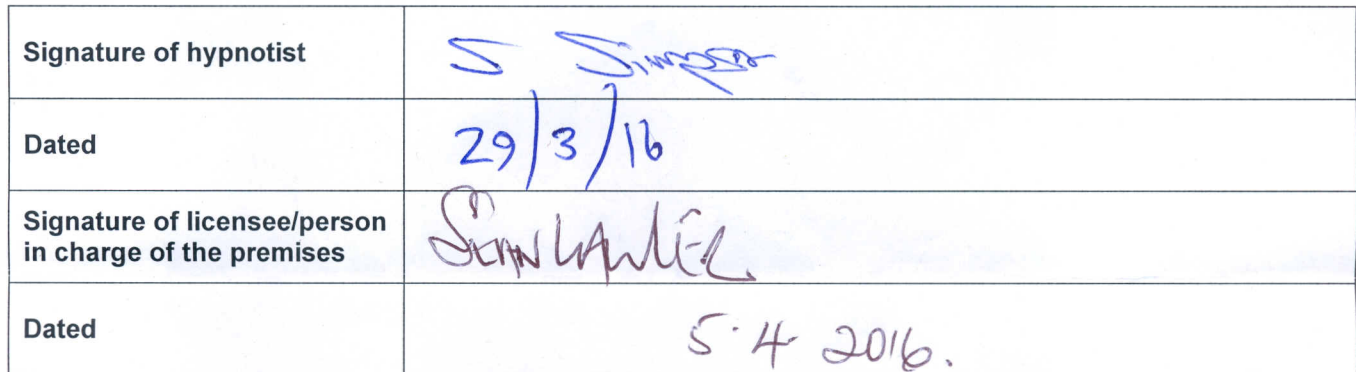 Signature of hypnotist
S Simpson
Dated
29/3/16
Signature of licensee/person
in charge of the premises
Dated
5.4.2016.